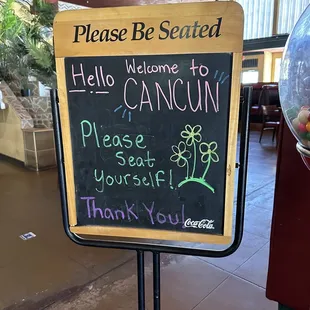 Please Be Seated
Hello Welcome to
CANCUN
Please
Seat
yourself!
Thank You!
Coca-Cola